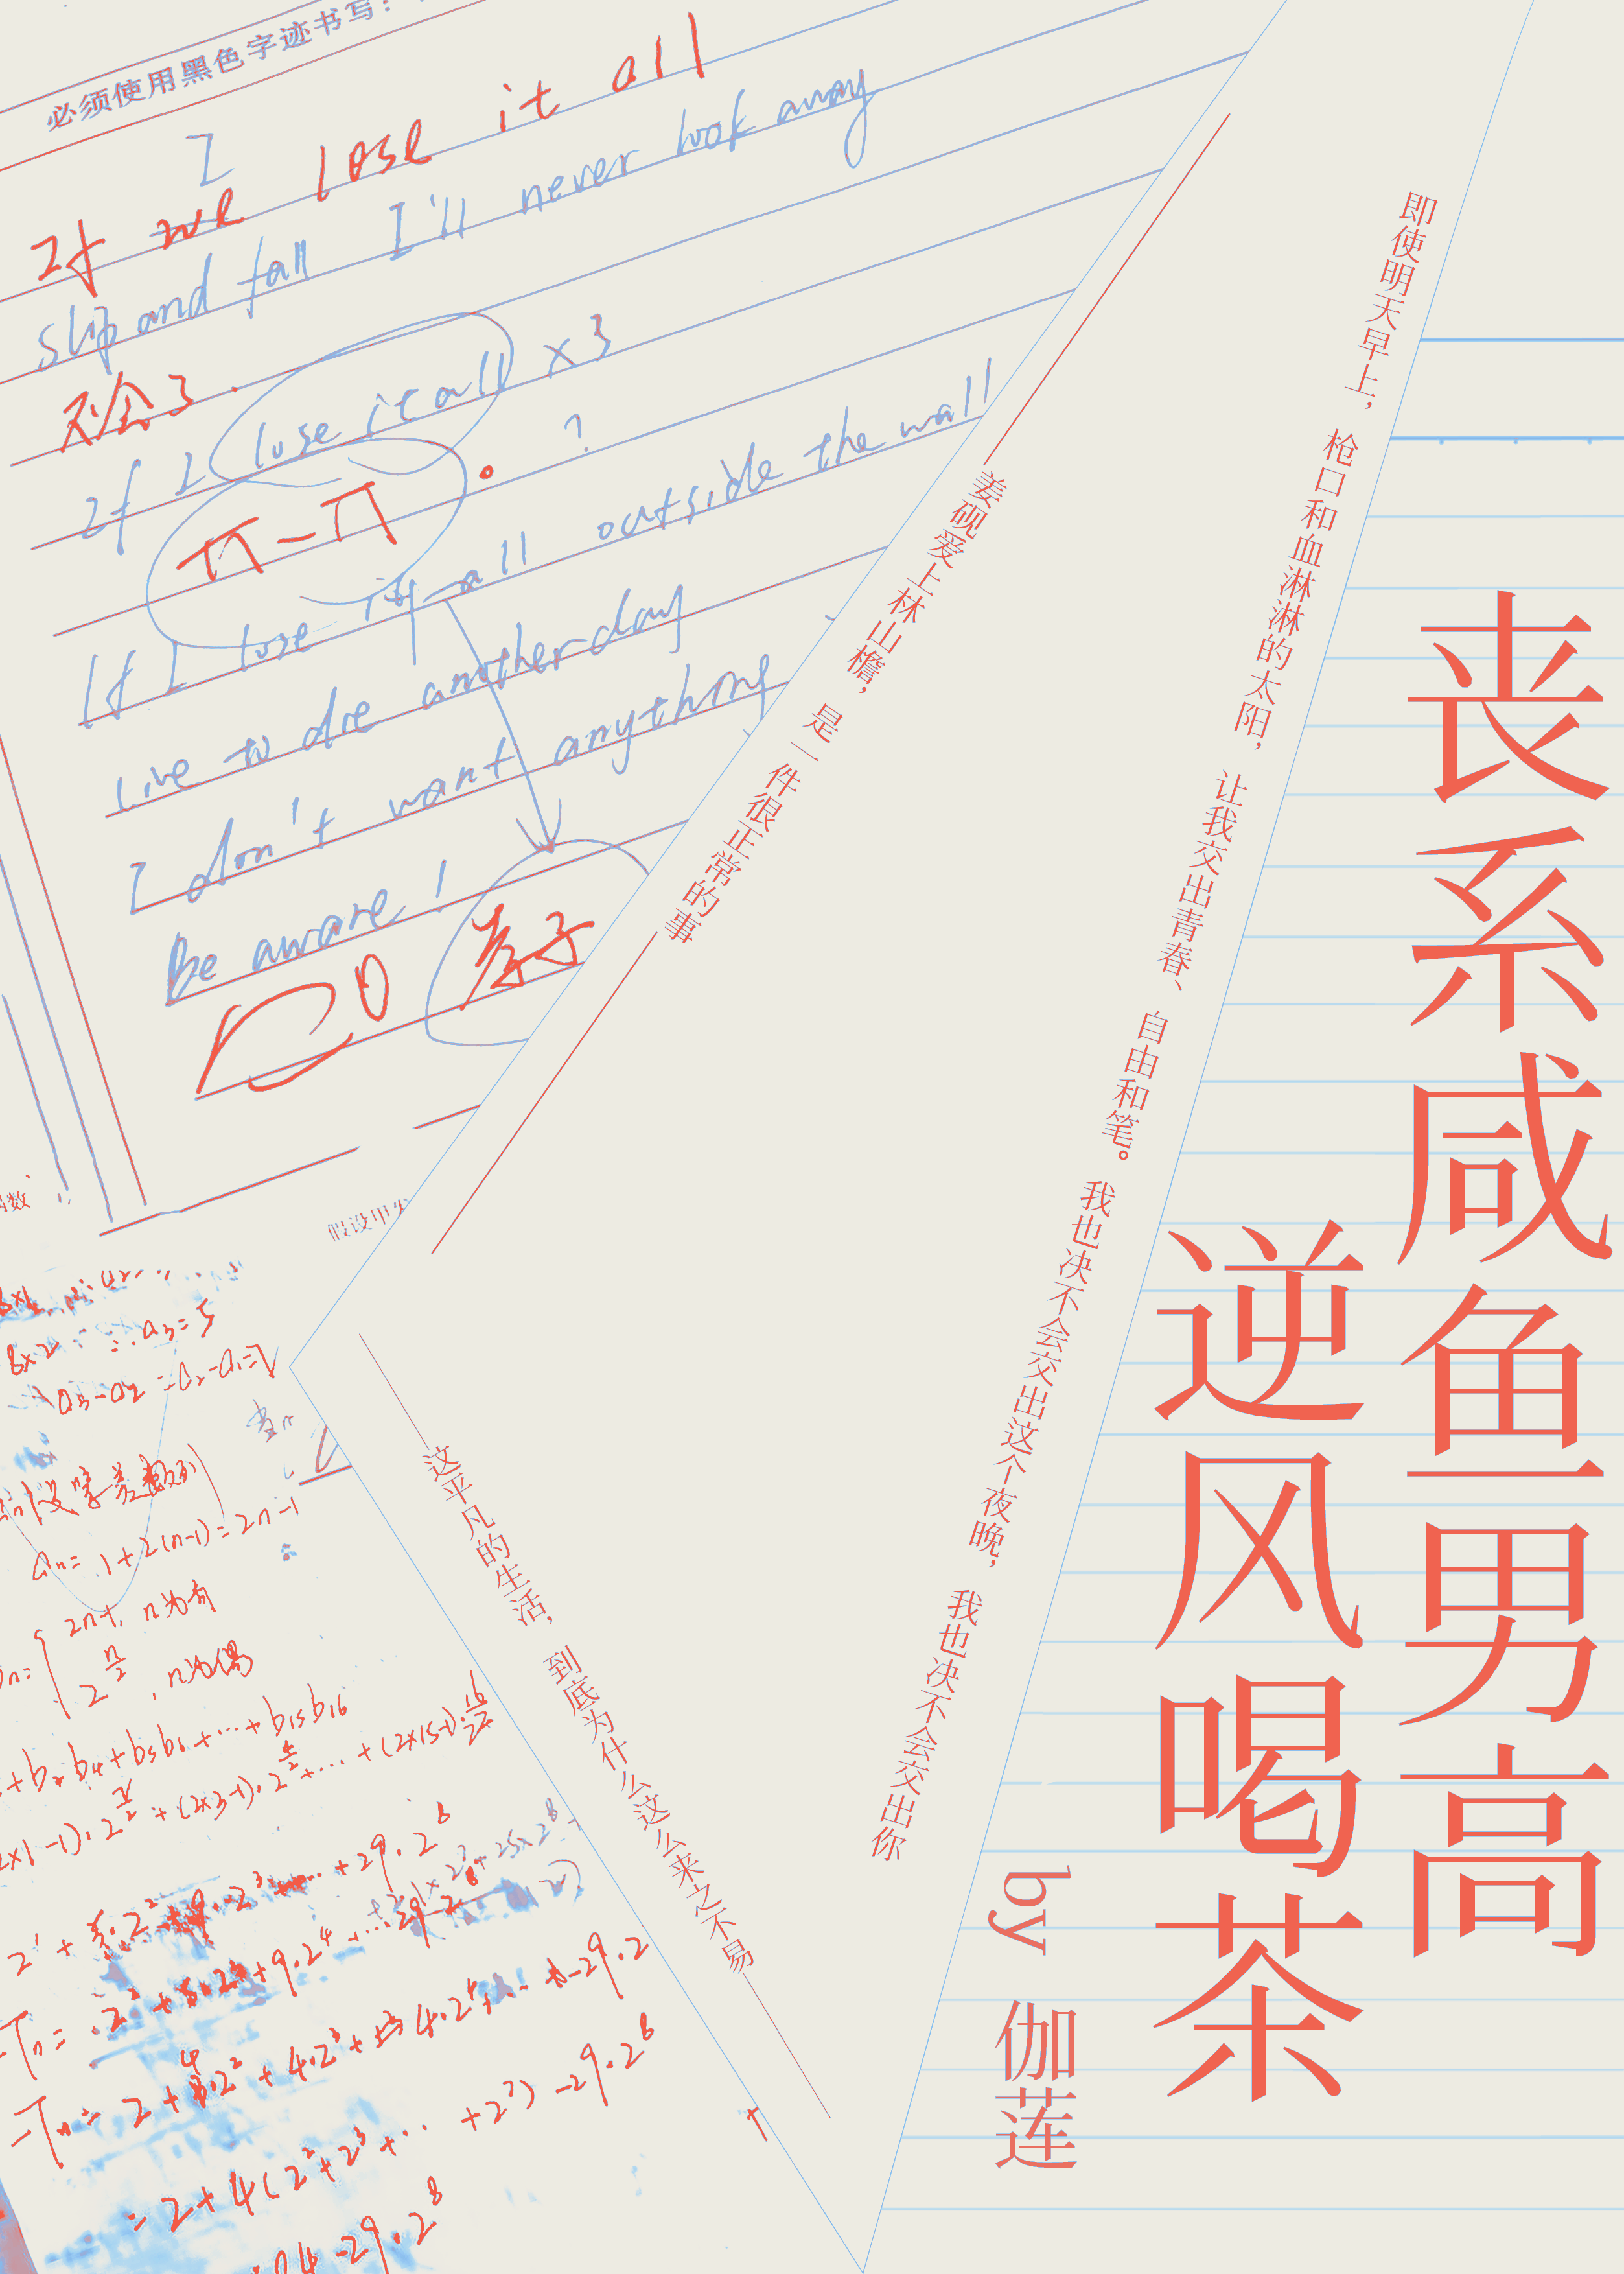 丧系咸鱼男高
逆风喝茶
by 伽莲
即使明天早上，枪口和血淋淋的太阳，让我交出青春、自由和笔。我也决不会交出这个夜晚，我也决不会交出你
姜砚爱上林山檐，是一件很正常的事
这平凡的生活，到底为什么这么来之不易
必须使用黑色字迹书写：
I
If we lose it all
slip and fall I'll never look away
不会了.
If I lose it all ×3
π-π 。 ?
If I lose it all outside the wall
Live to die another day
I don't want anything
Be aware!
孝子
假设甲
8×2 ∴a3=5
a3-a2=a2-a1=
an=1+2(n-1)=2n-1
2n-1, n为奇
2^(n/2), n为偶
+b2b4+b5b6+…+b15b16
+…+29·2^8
-Tn=
-Tn=2+ +4·2^3+
=2+4(2^2+2^3+… +2^7)-29·2^8
-29·2^8